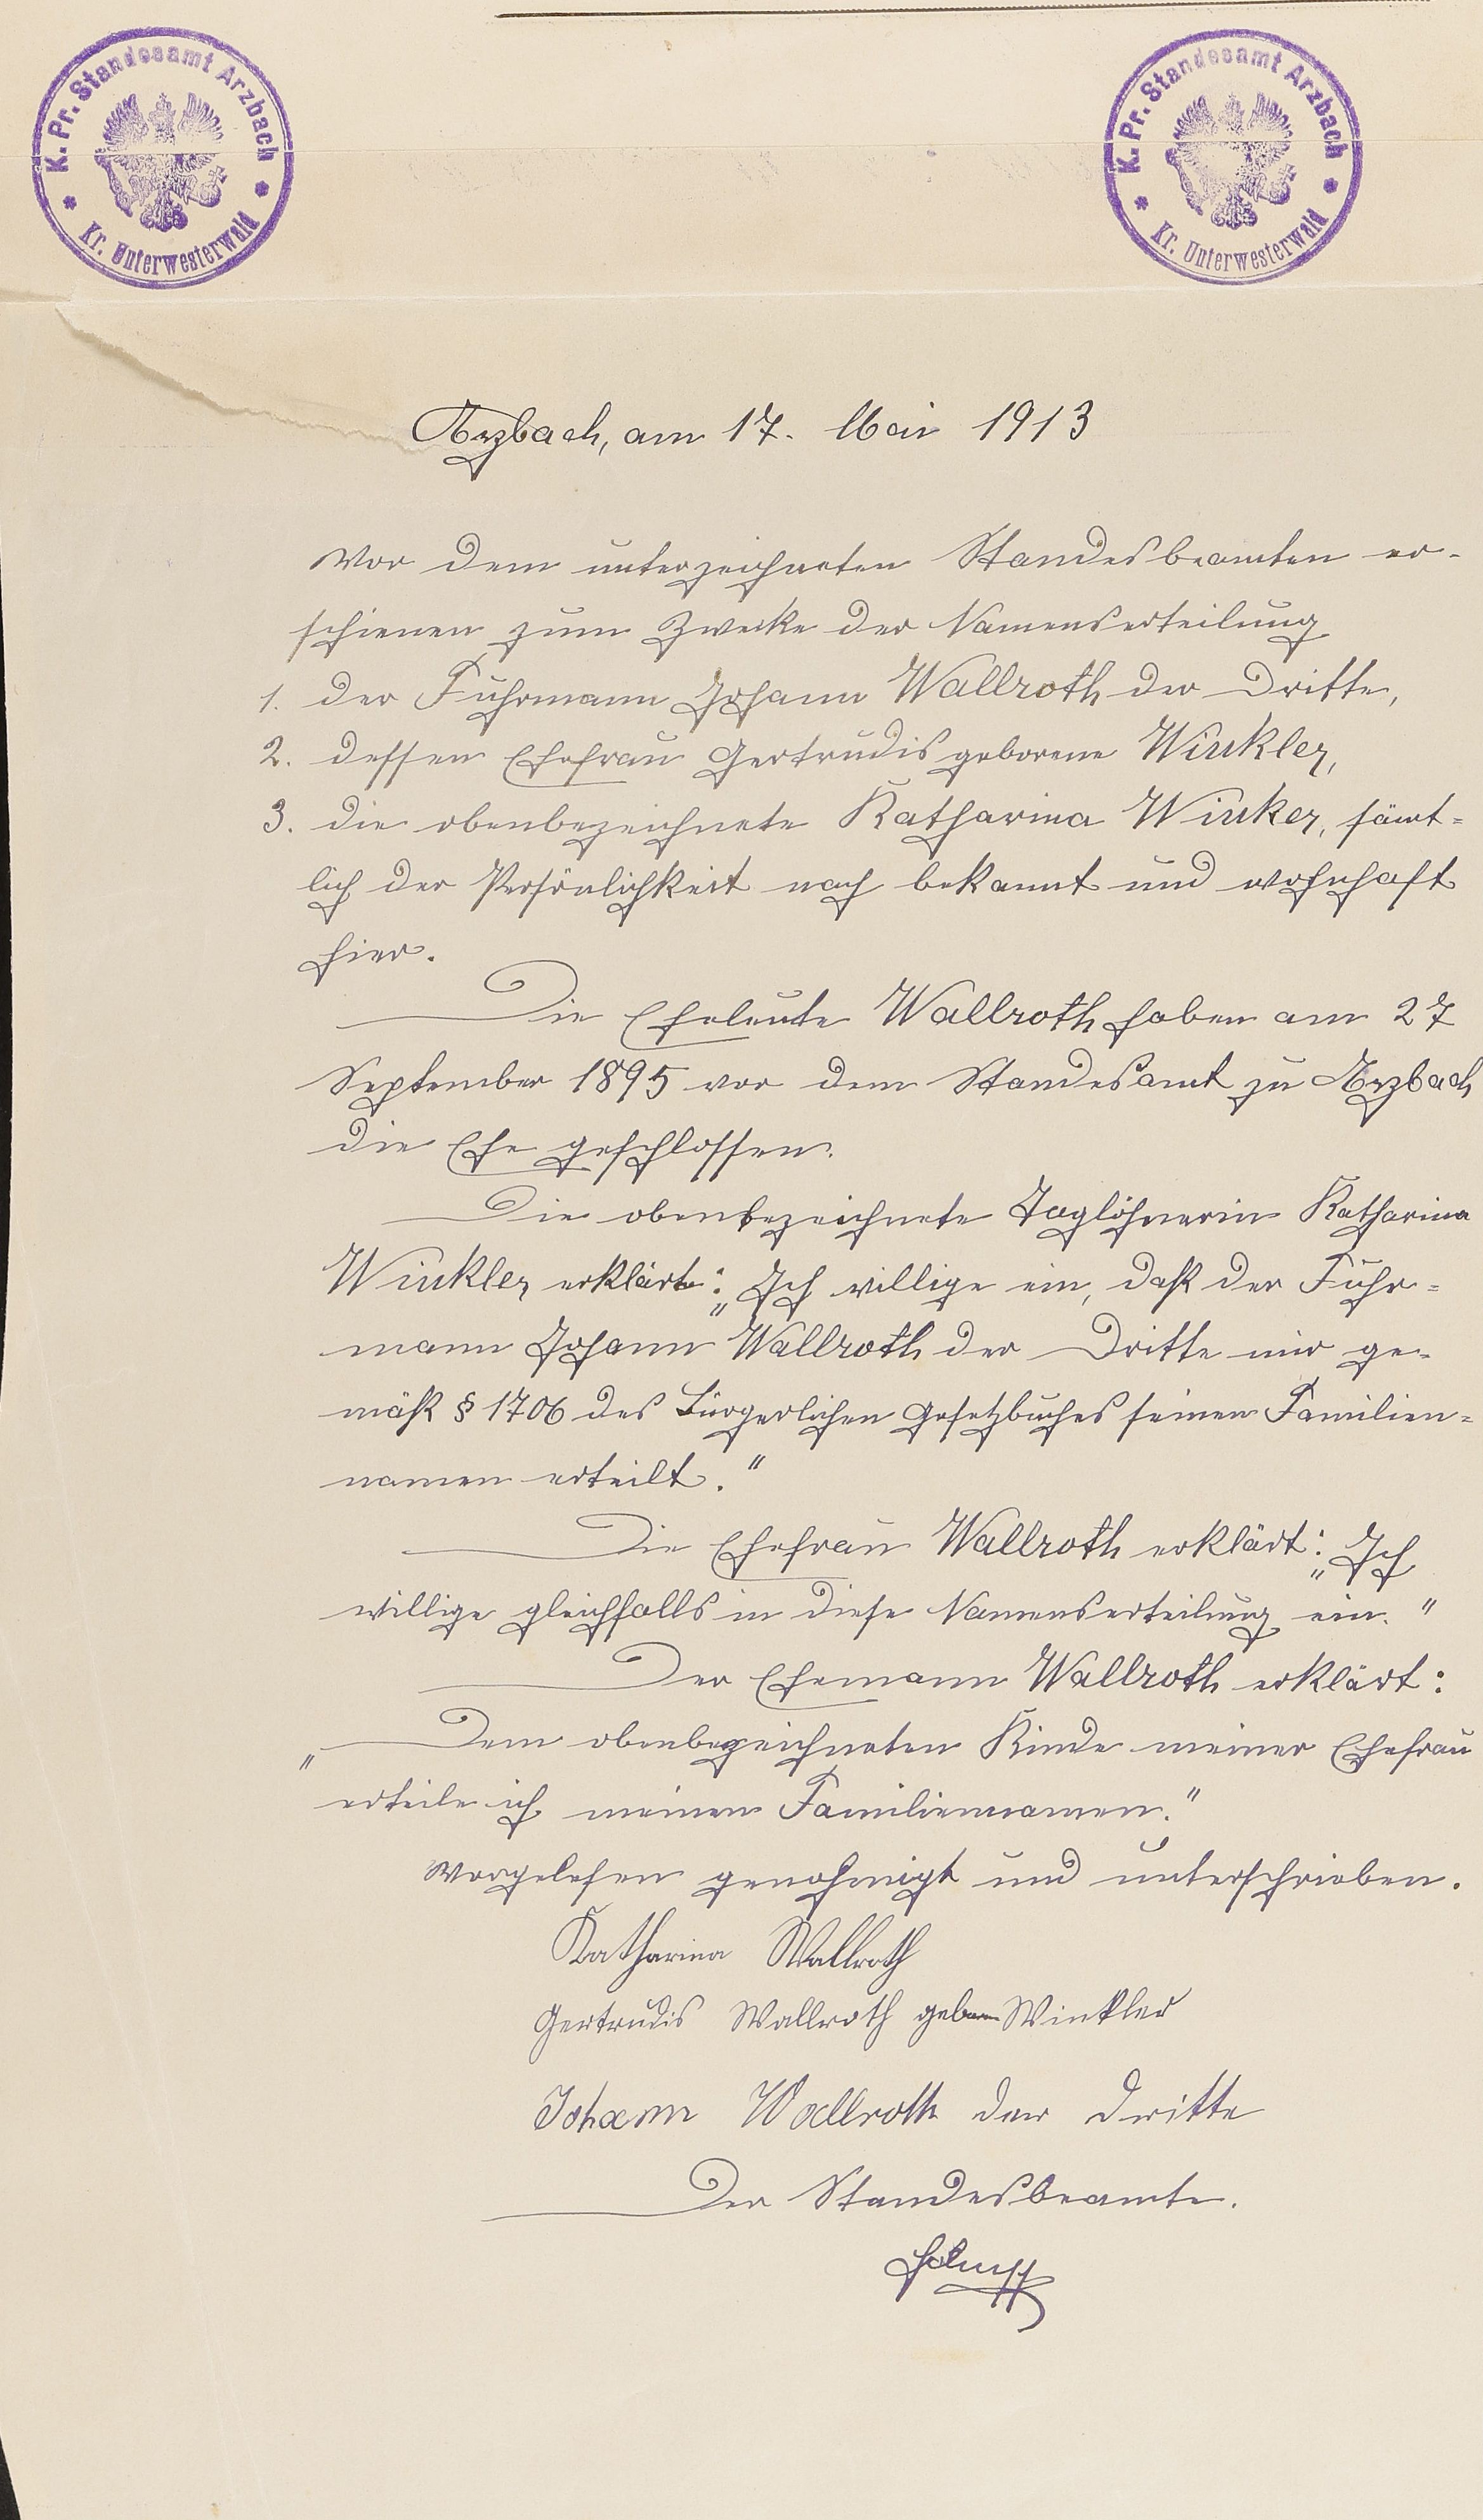 K. Pr. Standesamt Arzbach
Kr. Unterwesterwald
K. Pr. Standesamt Arzbach
Kr. Unterwesterwald
Arzbach, am 17. Mai 1913
Vor dem unterzeichneten Standesbeamten er-
schienen zum Zwecke der Namenserteilung
1. der Fuhrmann Johann Wallroth der Dritte,
2. dessen Ehefrau Gertrudis geborene Winkler,
3. die obenbezeichnete Katharina Winker, sämt-
lich der Persönlichkeit nach bekannt und wohnhaft
hier.
Die Eheleute Wallroth haben am 27
September 1895 vor dem Standesamt zu Arzbach
die Ehe geschlossen.
Die obenbezeichnete Taglöhnerin Katharina
Winkler erklärt: „Ich willige ein, daß der Fuhr-
mann Johann Wallroth der Dritte mir ge-
mäß § 1706 des Bürgerlichen Gesetzbuches seinen Familien-
namen erteilt.“
Die Ehefrau Wallroth erklärt: „Ich
willige gleichfalls in diese Namenserteilung ein.“
Der Ehemann Wallroth erklärt:
„Dem obenbezeichneten Kinde meiner Ehefrau
erteile ich meinen Familiennamen.“
Vorgelesen genehmigt und unterschrieben.
Katharina Wallroth
Gertrudis Wallroth geboren Winkler
Johann Wallroth der Dritte
Der Standesbeamte.